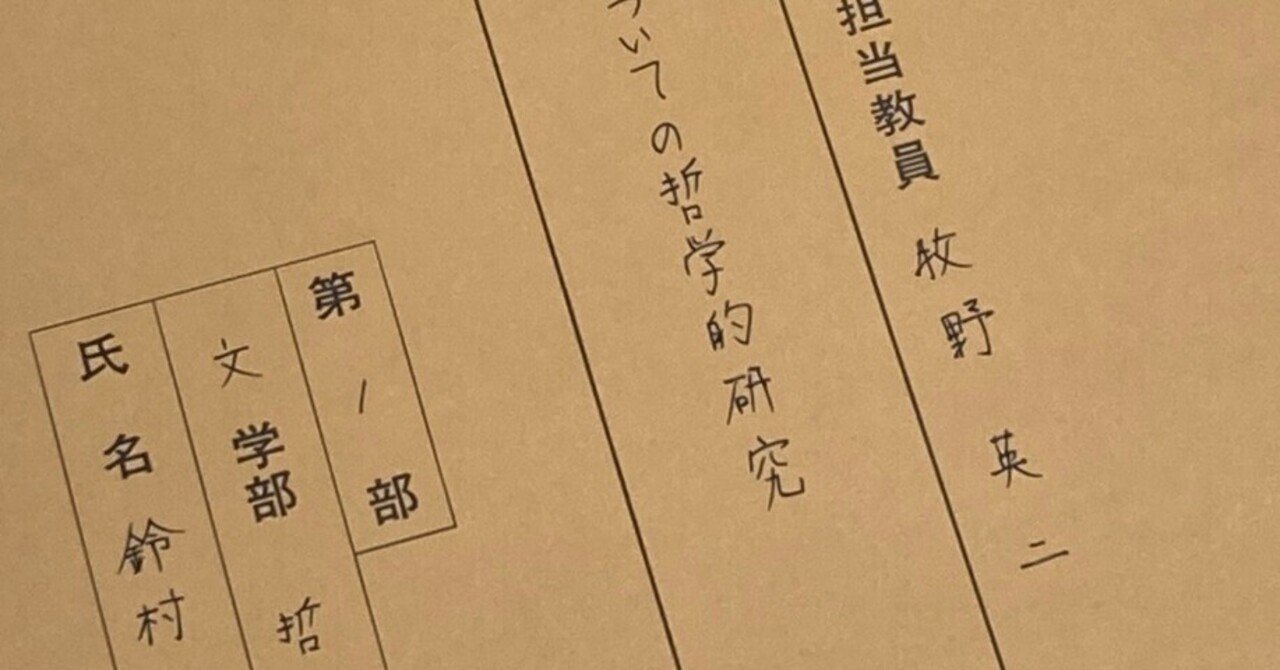 担当教員 牧野 英二
ついての哲学的研究
第1部
文学部 哲
氏名 鈴村